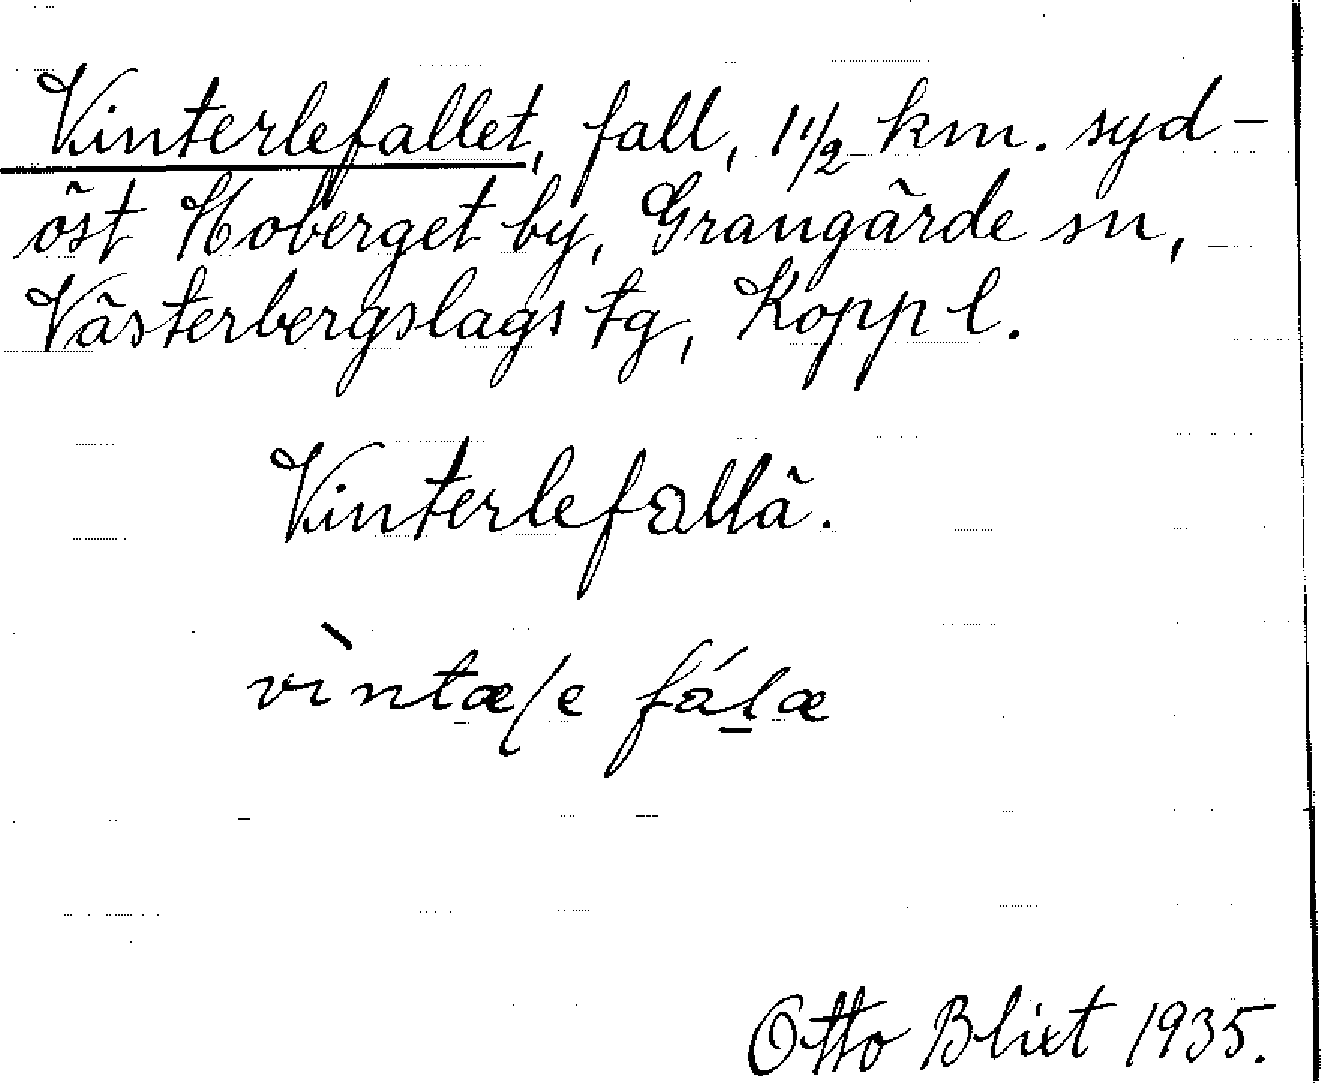 Vinterlefallet, fall, 1 1/2 km. syd-
öst Hoberget by, Grangärde sn,
Västerbergslags tg, Kopp l.
Vinterlefallä.
vìntæle fálæ
Otto Blixt 1935.